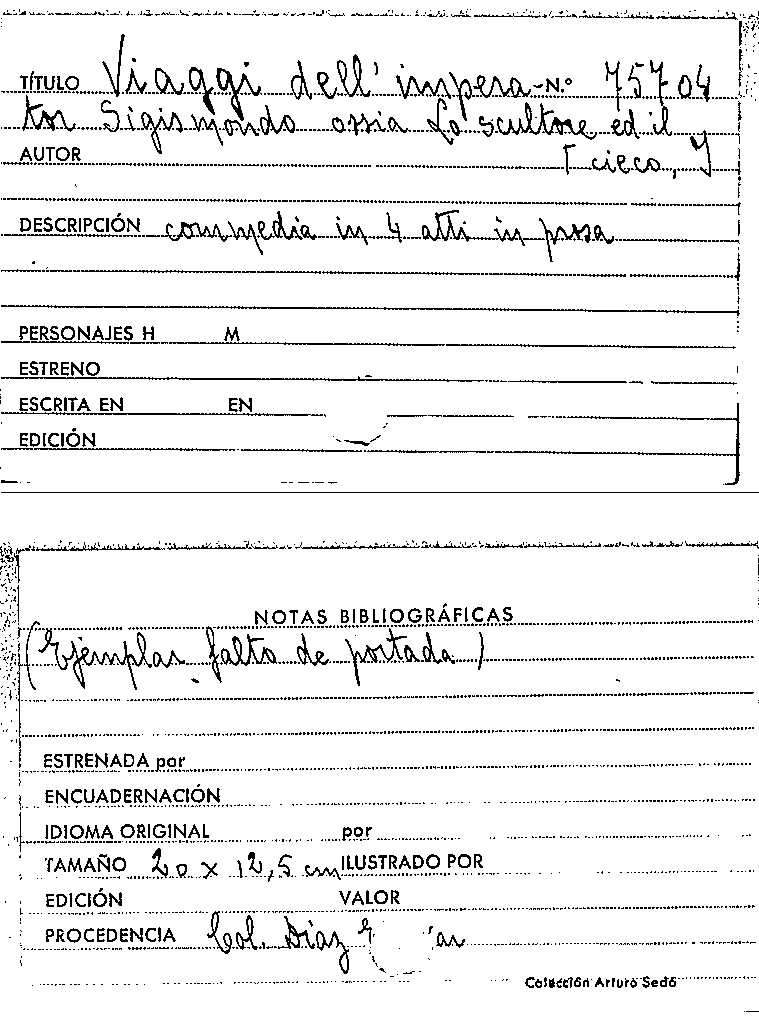 TÍTULO Viaggi dell' impera- N.º 75704
tor Sigismondo ossia Lo scultore ed il
AUTOR cieco, I
DESCRIPCIÓN commedia in 4 atti in prosa
PERSONAJES H M
ESTRENO
ESCRITA EN EN
EDICIÓN
NOTAS BIBLIOGRÁFICAS
(Ejemplar falto de portada)
ESTRENADA por
ENCUADERNACIÓN
IDIOMA ORIGINAL por
TAMAÑO 20 x 12,5 cm ILUSTRADO POR
EDICIÓN VALOR
PROCEDENCIA Col. Díaz
Colección Arturo Sedó